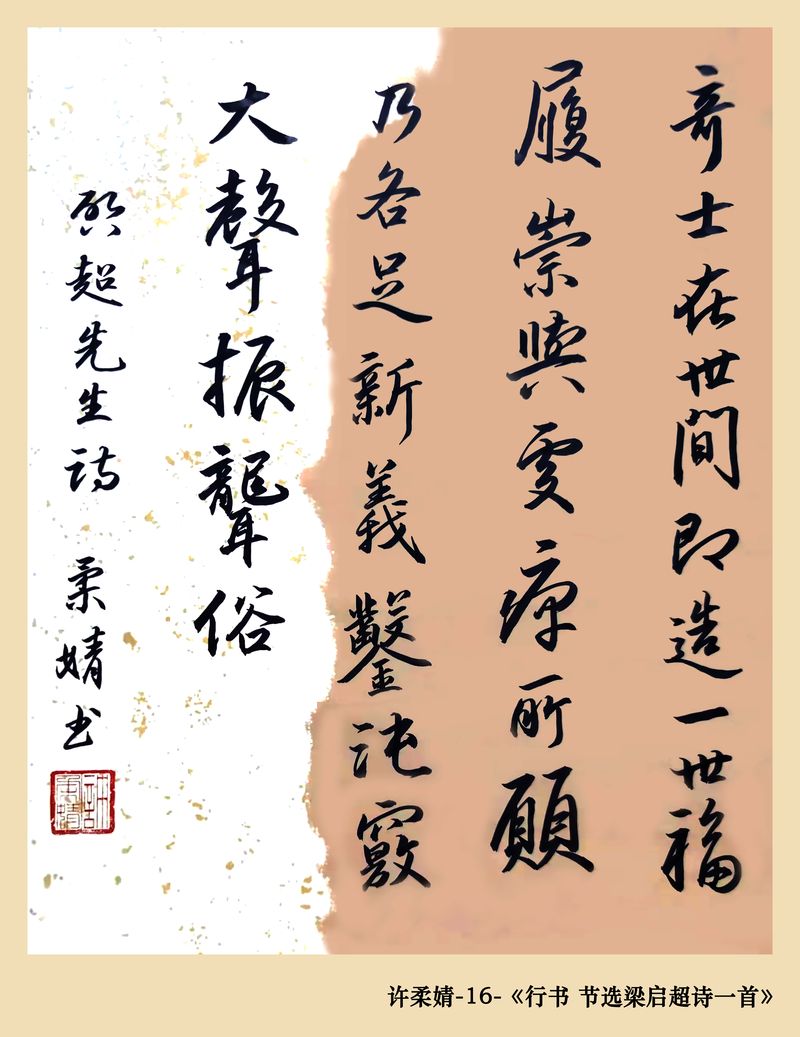 奇士在世間即造一世福
履崇所願
乃各足新義鑿沌竅
大聲振聾俗
啟超先生詩 柔婧书
許柔婧
许柔婧-16-《行书 节选梁启超诗一首》